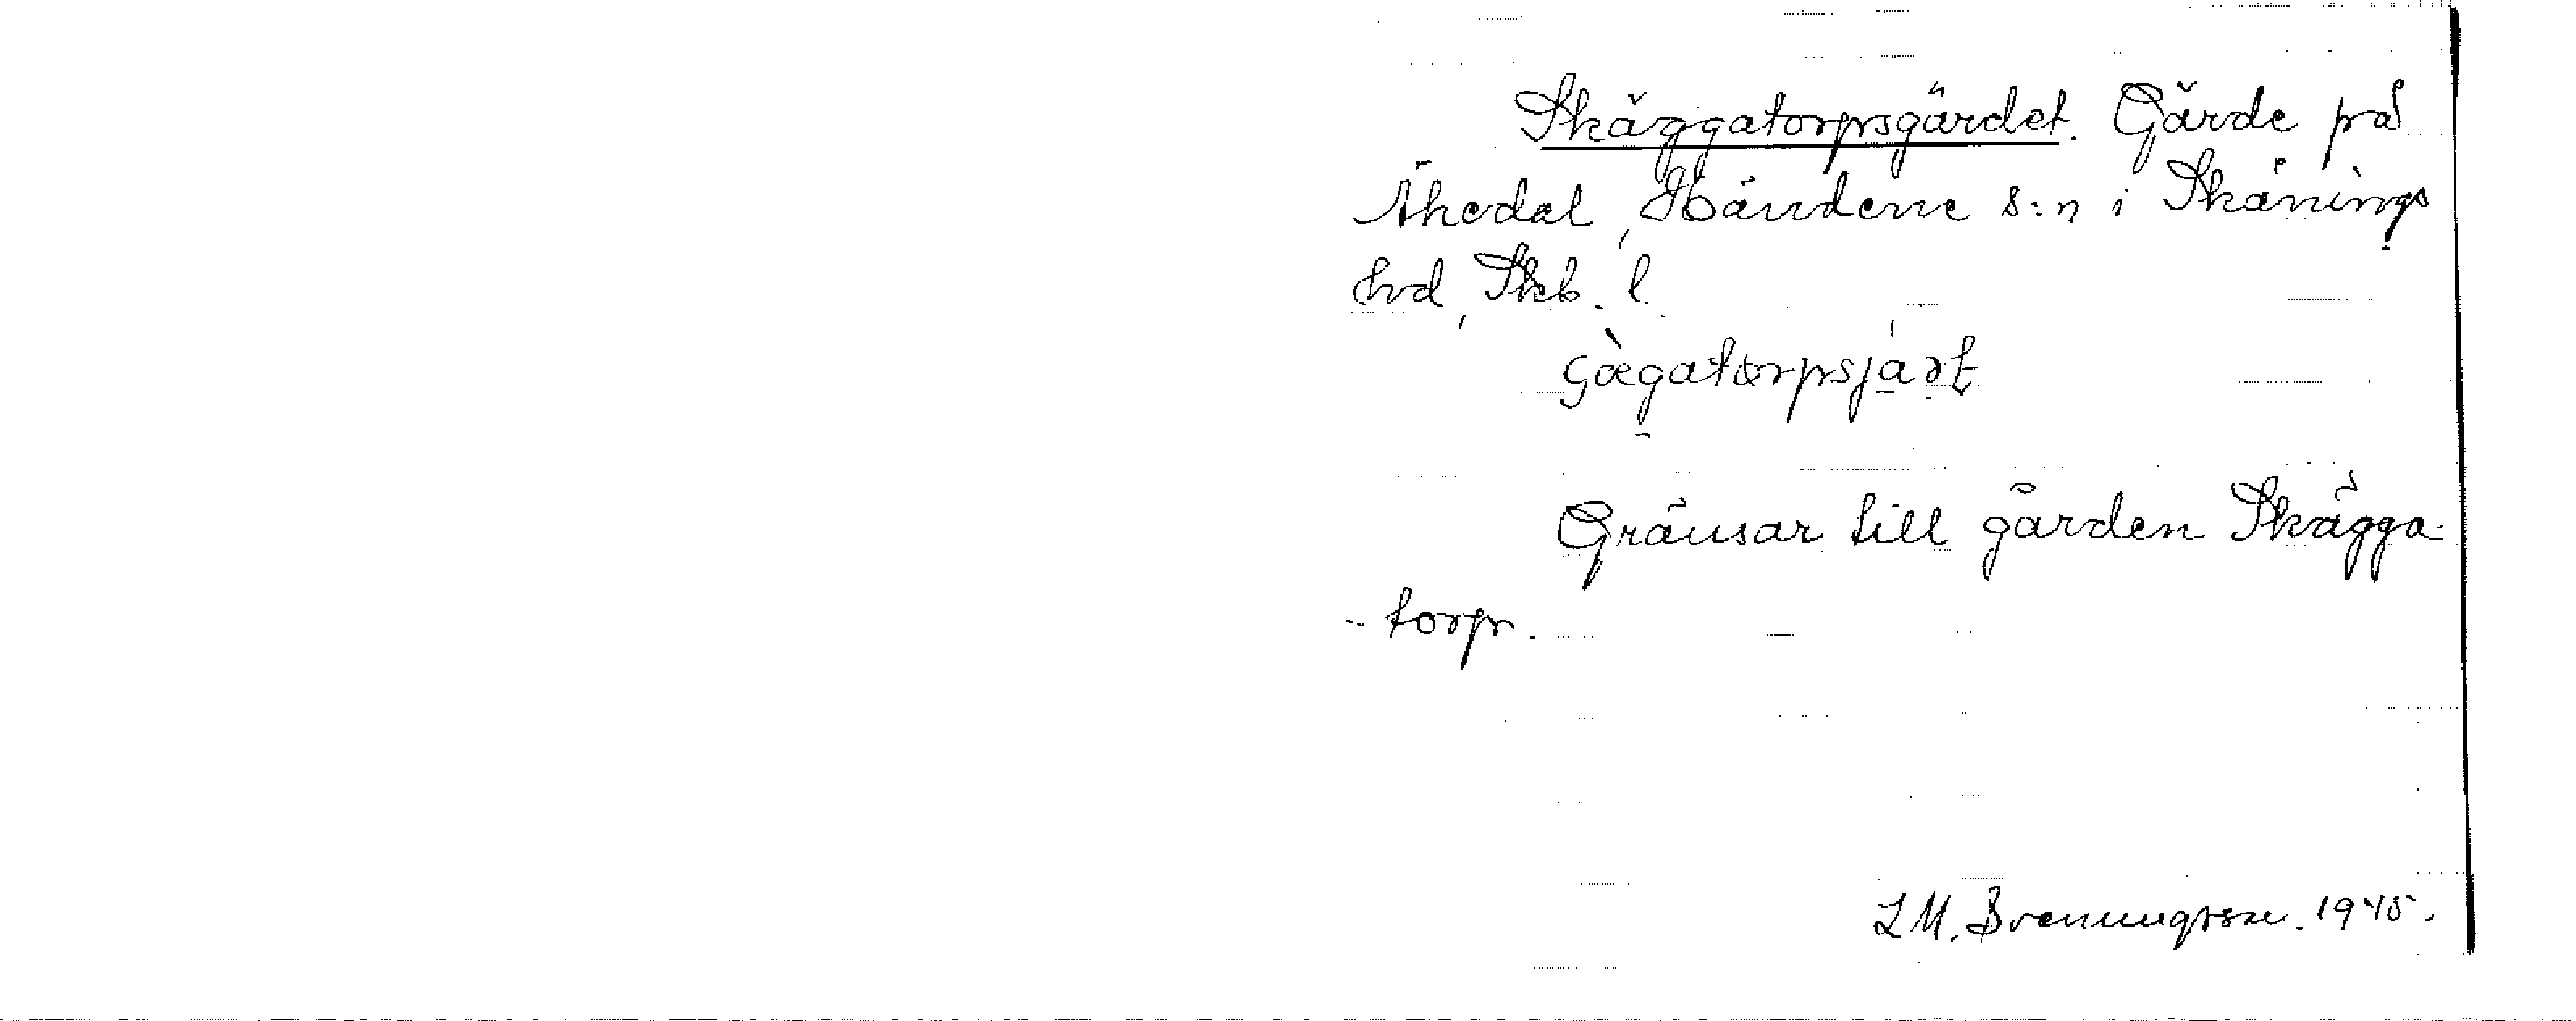 Skäggatorpsgärdet. Gärde på
Åkedal, Händene s:n i Skånings
hd, Skb. l.
Gränsar till gården Skägga-
- torp.
L M. Svenungsson. 1945.